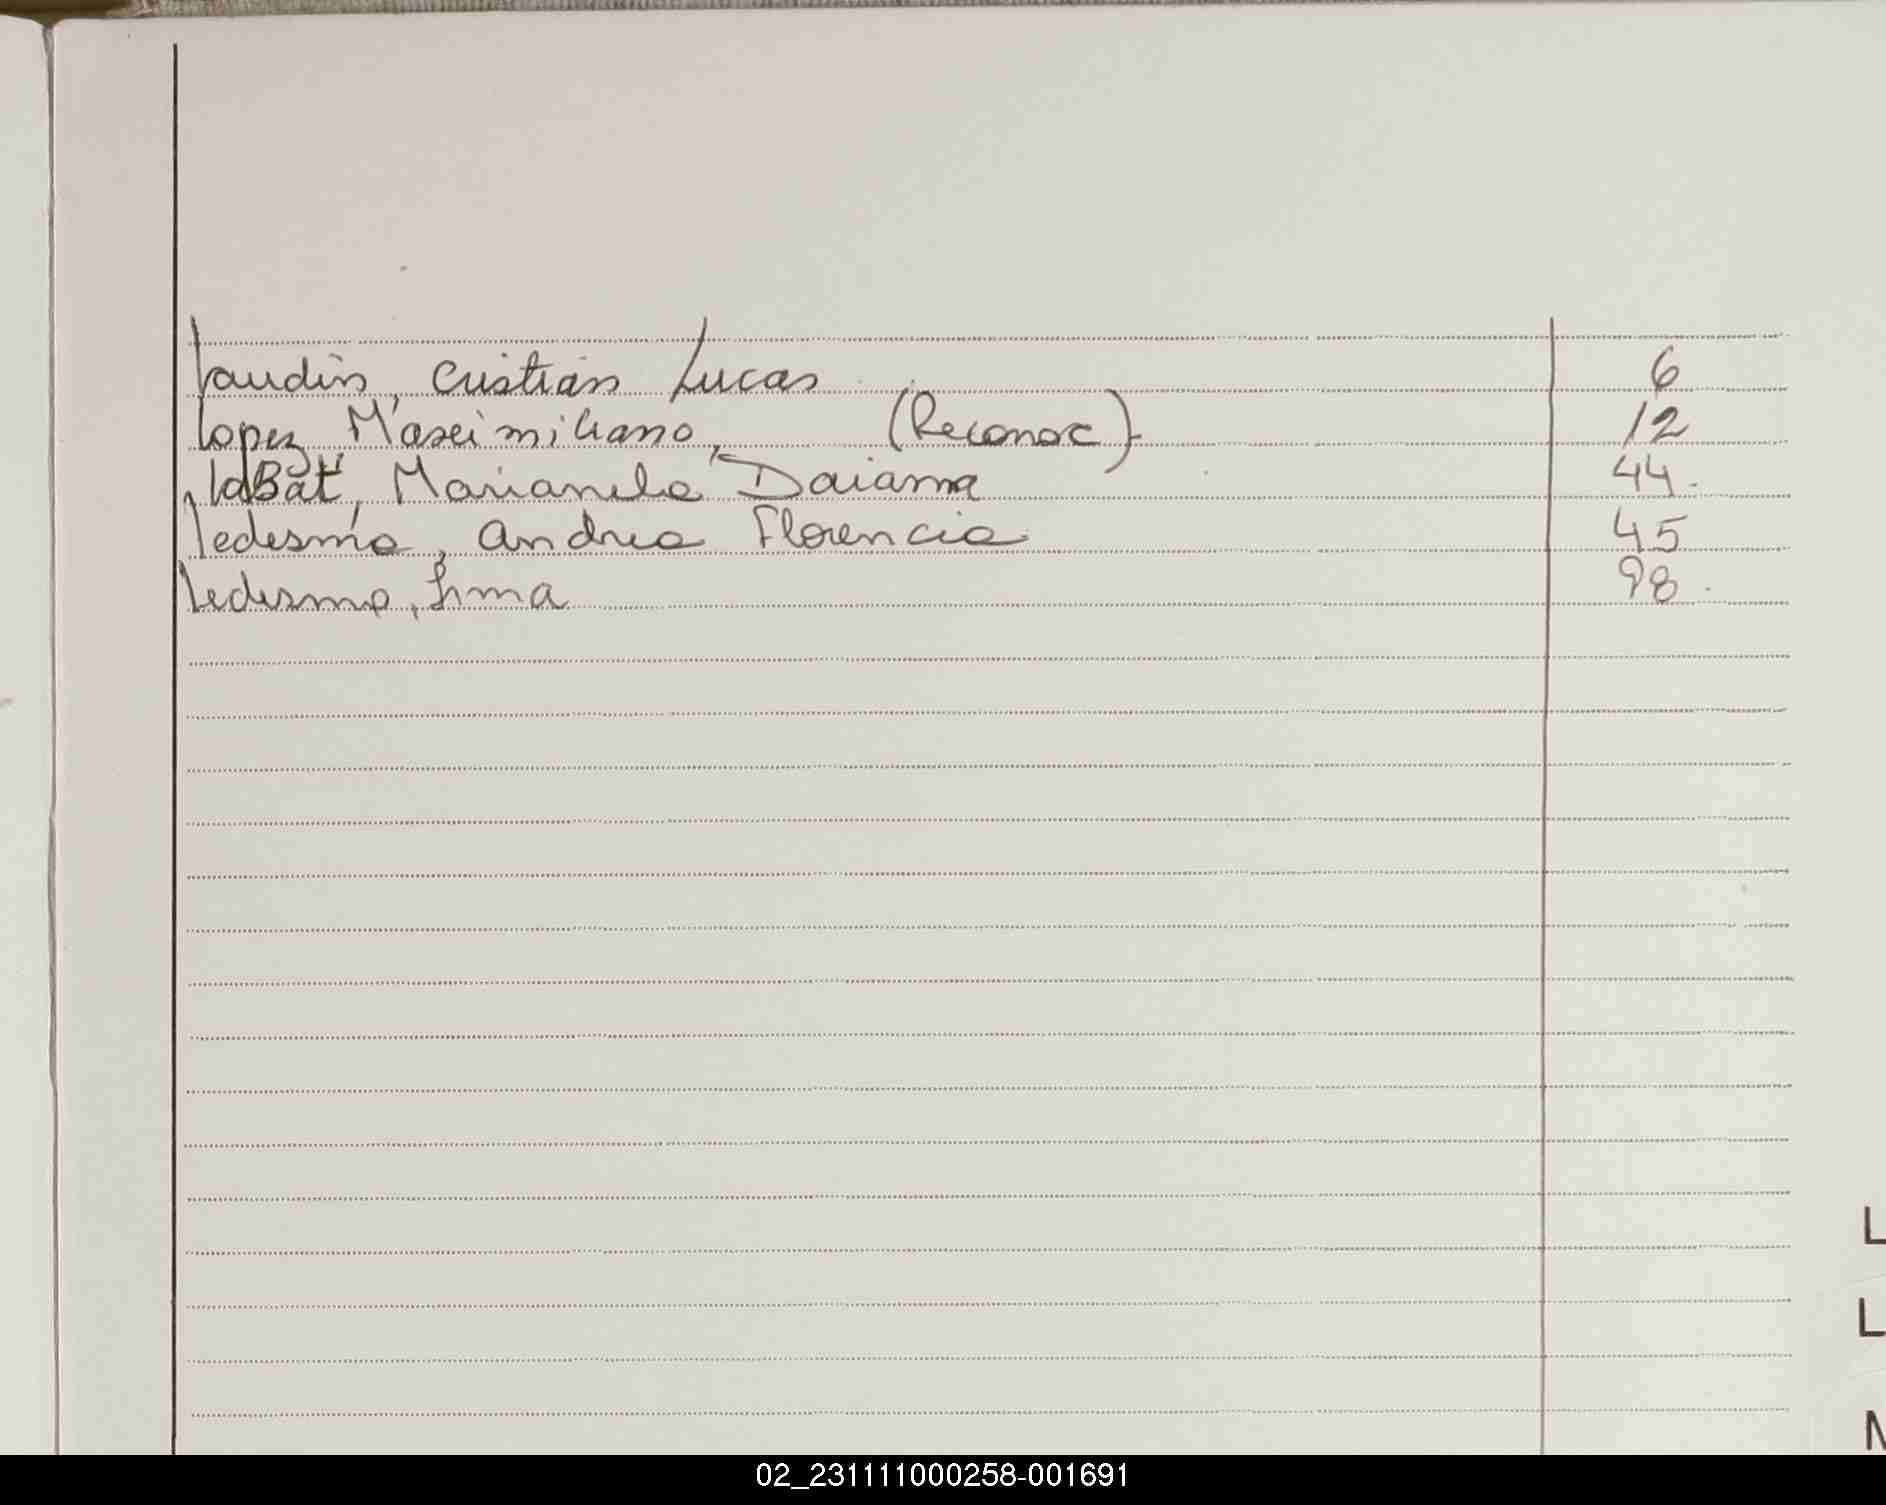 Laudin, Cristian Lucas 6
Lopez, Maximiliano, (Reconoc) 12
LaBat, Marianela Daiana 44
Ledesma, Andrea Florencia 45
Ledesma, 98
L
L
02_231111000258-001691